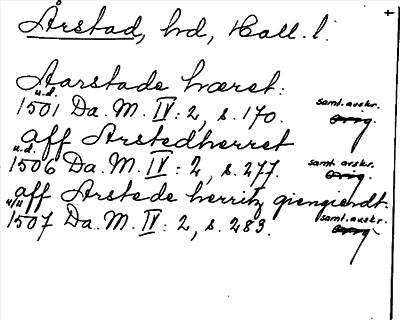 Årstad, hd, Hall. l.
Aarstade hæret:
u.d.
1501 Da. M. IV: 2, s. 170. samt. avskr. Orig.
aff Arstedherret
u.d.
1506 Da. M. IV: 2, s. 277. samt. avskr. Orig.
aff Arstede herritz giengierdt.
4/11
1507 Da. M. IV: 2, s. 283. samt. avskr. Orig.